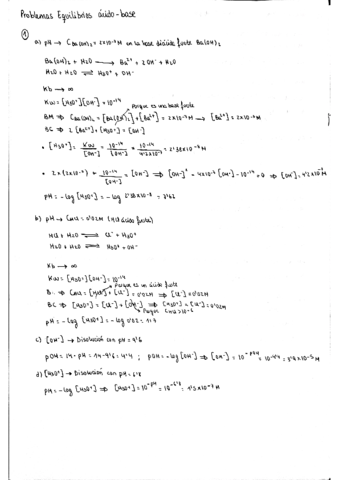 Problemas Equilibrios ácido-base
①
a) pH → C Ba(OH)₂ = 2×10⁻⁷M en la base diácida fuerte Ba(OH)₂
Ba(OH)₂ + H₂O → Ba²⁺ + 2OH⁻ + H₂O
H₂O + H₂O ⇌ H₃O⁺ + OH⁻
Kb → ∞
Kw = [H₃O⁺][OH⁻] = 10⁻¹⁴
Porque es una base fuerte
BM ⇒ C Ba(OH)₂ = [Ba(OH)₂] + [Ba²⁺] = 2×10⁻⁷M → [Ba²⁺] = 2×10⁻⁷M
BC ⇒ 2[Ba²⁺] + [H₃O⁺] = [OH⁻]
• [H₃O⁺] = Kw/[OH⁻] = 10⁻¹⁴/[OH⁻] = 10⁻¹⁴
• 2×(2×10⁻⁷) + 10⁻¹⁴/[OH⁻] = [OH⁻] ⇒ [OH⁻]² - 4×10⁻⁷[OH⁻] - 10⁻¹⁴ = 0 ⇒ [OH⁻] =
pH = -log [H₃O⁺] = -log
b) pH → C HCl = 0'02M (HCl ácido fuerte)
HCl + H₂O ⇌ Cl⁻ + H₃O⁺
H₂O + H₂O ⇌ H₃O⁺ + OH⁻
Kb → ∞
Kw = [H₃O⁺][OH⁻] = 10⁻¹⁴
Porque es un ácido fuerte
C HCl = [HCl] + [Cl⁻] = 0'02M ⇒ [Cl⁻] = 0'02M
BC ⇒ [H₃O⁺] = [Cl⁻] + [OH⁻] ⇒ [H₃O⁺] = [Cl⁻] = 0'02M
Porque C HCl > 10⁻⁶
pH = -log [H₃O⁺] = -log 0'02 = 1'7
c) [OH⁻] → Disolución con pH = 9'6
pOH = 14 - pH = 14 - 9'6 = 4'4 ; pOH = -log [OH⁻] ⇒ [OH⁻] = 10^-pOH = 10⁻⁴'⁴ = 3'9×10⁻⁵ M
d) [H₃O⁺] → Disolución con pH = 6'8
pH = -log [H₃O⁺] ⇒ [H₃O⁺] = 10^-pH = 10⁻⁶'⁸ = 1'5×10⁻⁷ M